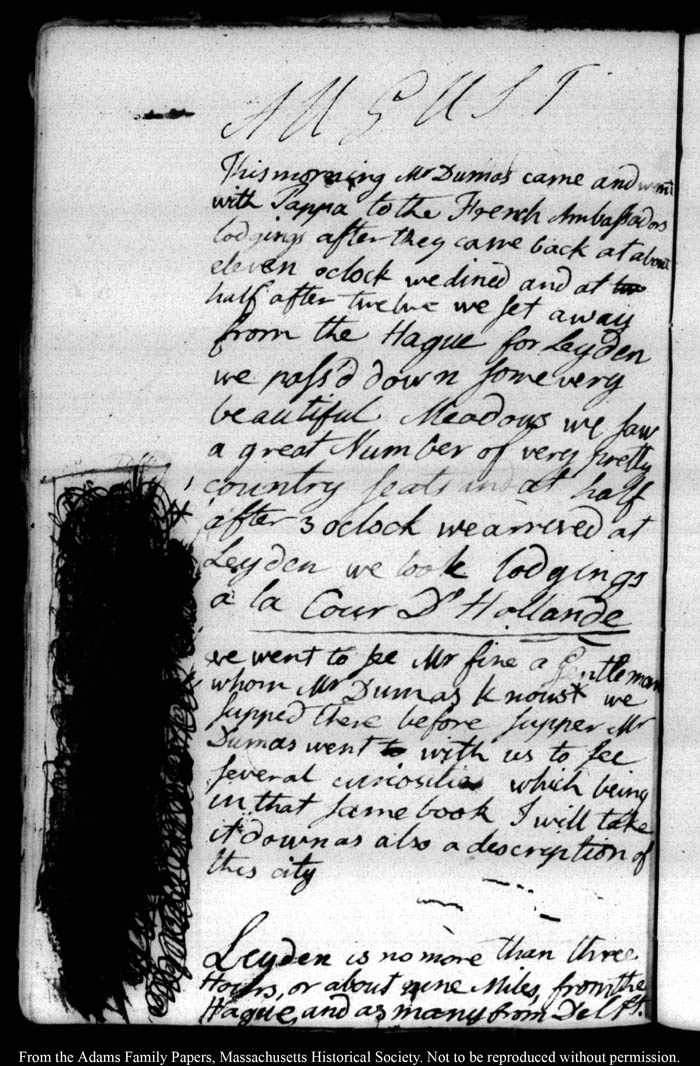 AUGUST
This morning Mr Dumas came and went
with Pappa to the French Ambassadors
lodgings after they came back at about
eleven oclock we dined and at
half after twelve we set away
from the Hague for Leyden
we pass'd down some very
beautiful Meadows we saw
a great Number of very pretty
country seats and at half
after 3 oclock we arrived at
Leyden we took lodgings
a la Cour D'Hollande
we went to see Mr fine a Gentleman
whom Mr Dumas knows* we
supped there before supper Mr
Dumas went to with us to see
several curiosities which being
in that same book I will take
it down as also a description of
this city
Leyden is no more than three
Hours, or about nine Miles, from the
Hague, and as many from Delft.
From the Adams Family Papers, Massachusetts Historical Society. Not to be reproduced without permission.